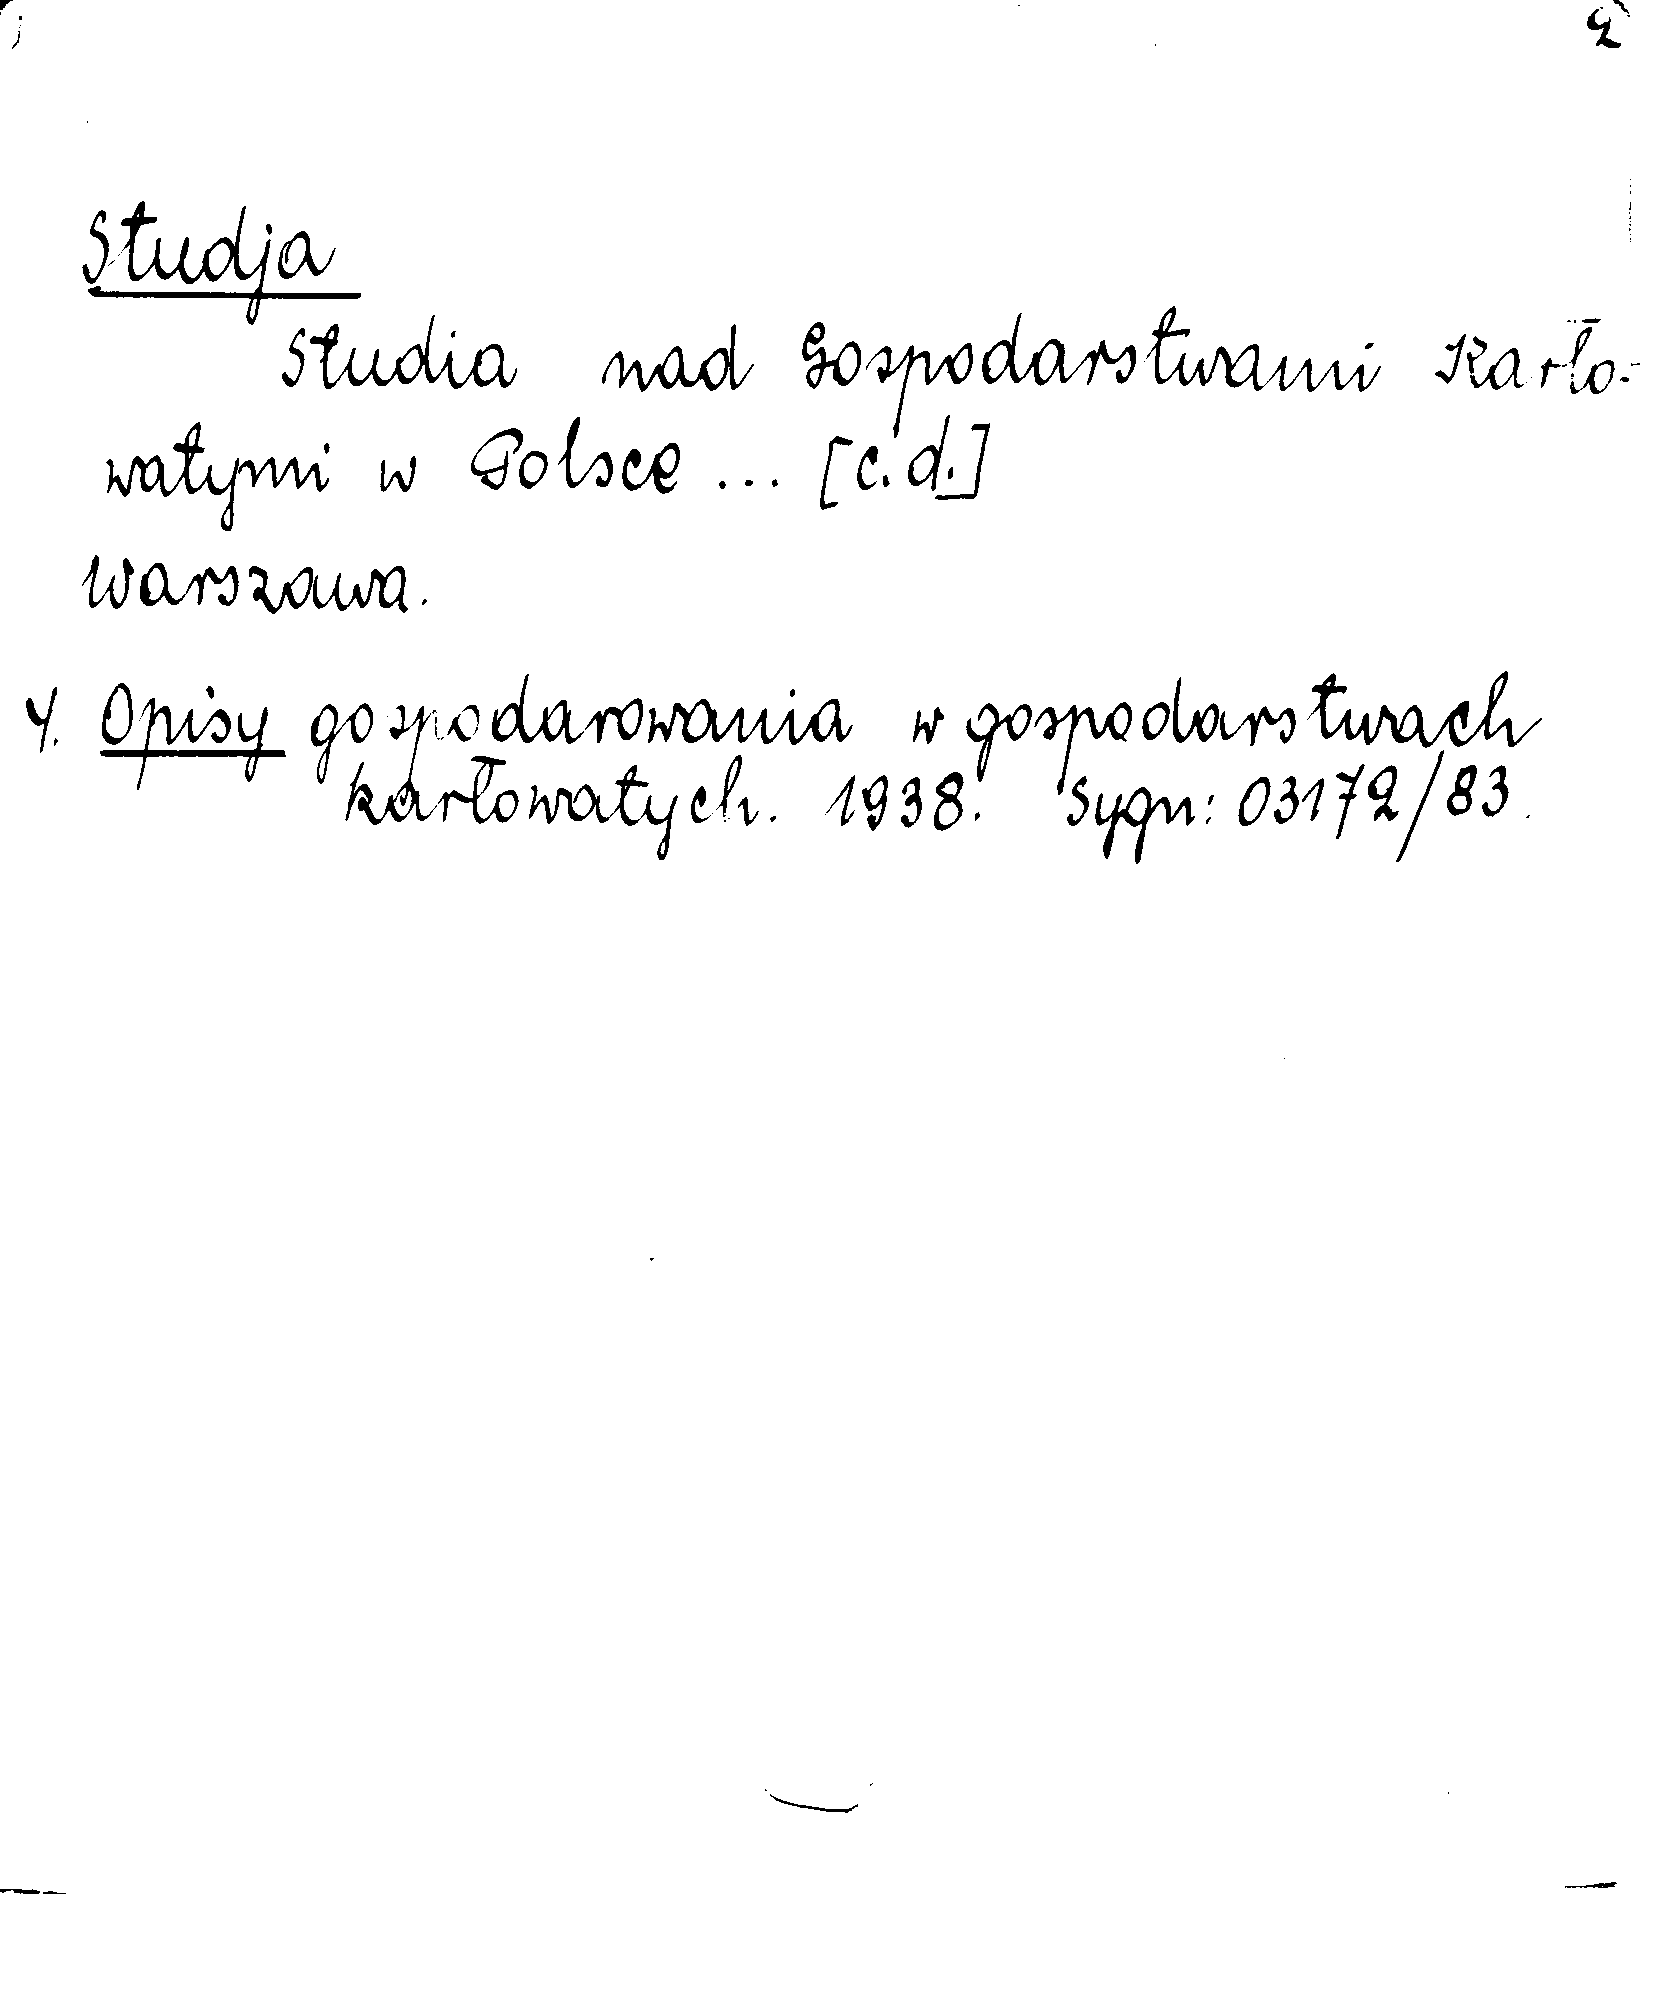 2
Studja
Studia nad Gospodarstwami Karło-
watymi w Polsce ... [c.d.]
Warszawa.
4. Opisy gospodarowania w gospodarstwach
karłowatych. 1938. Sygn: 03172/83.